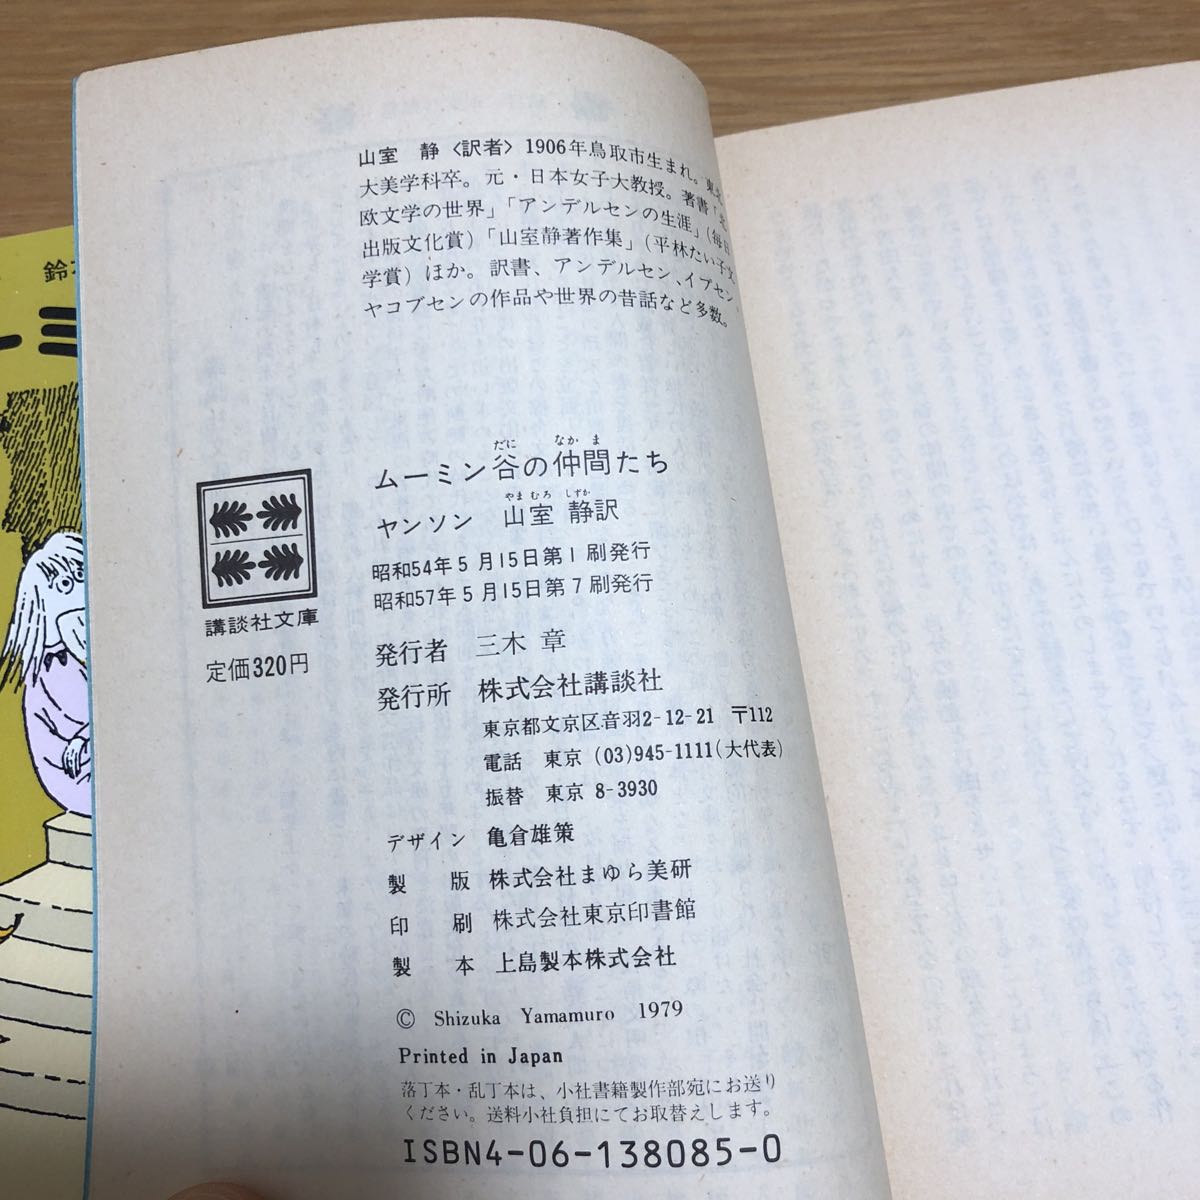 山室 静〈訳者〉1906年鳥取市生まれ。東北
大美学科卒。元・日本女子大教授。著書「北
欧文学の世界」「アンデルセンの生涯」(毎日
出版文化賞)「山室静著作集」(平林たい子文
学賞)ほか。訳書、アンデルセン、イプセン、
ヤコブセンの作品や世界の昔話など多数。
だに なかま
ムーミン谷の仲間たち
やまむろ しずか
ヤンソン 山室 静訳
昭和54年5月15日第1刷発行
昭和57年5月15日第7刷発行
発行者 三木 章
発行所 株式会社講談社
東京都文京区音羽2-12-21 〒112
電話 東京 (03)945-1111(大代表)
振替 東京 8-3930
デザイン 亀倉雄策
製 版 株式会社まゆら美研
印 刷 株式会社東京印書館
製 本 上島製本株式会社
© Shizuka Yamamuro 1979
Printed in Japan
落丁本・乱丁本は、小社書籍製作部宛にお送り
ください。送料小社負担にてお取替えします。
ISBN4-06-138085-0
講談社文庫
定価320円
鈴
ーミ